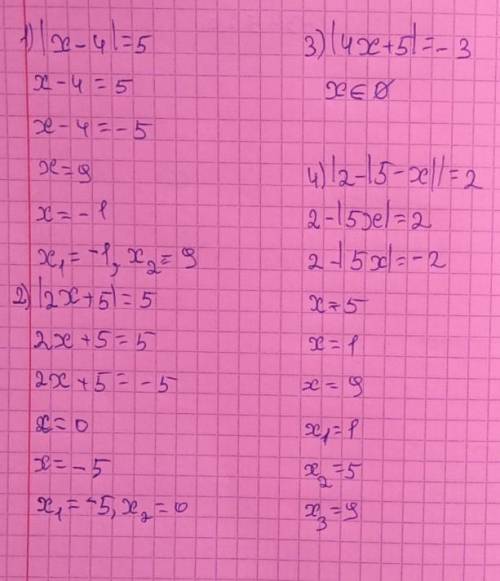 1) |x-4|=5
x-4=5
x-4=-5
x=9
x=-1
x₁=-1, x₂=9
2) |2x+5|=5
2x+5=5
2x+5=-5
x=0
x=-5
x₁=-5, x₂=0
3) |4x+5|=-3
x∈∅
4) |2-|5-x||=2
2-|5x|=2
2-|5x|=-2
x=5
x=1
x=9
x₁=1
x₂=5
x₃=9